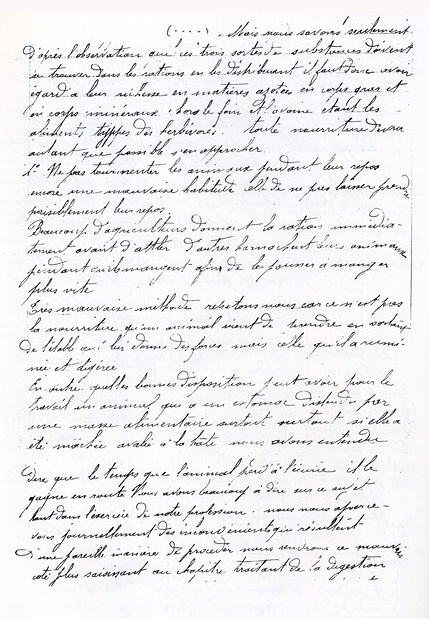 (.....) Mais nous savons seulement
d'après l'observation que ces trois sortes de substances doivent
se trouver dans les rations en les distribuant il faut donc avoir
égard a leur richesse en matières azotées en corps gras et
en corps minéraux. le foin et l'avoine etant les
aliments types des herbivores. toute nourriture devra
autant que possible s'en approcher.
1° Ne pas tourmenter les animaux pendant leur repos
encore une mauvaise habitude celle de ne pas laisser prendre
paisiblement leur repos.
Beaucoup d'agriculteurs donnent la ration immédia-
tement avant d'atteler d'autres harnachent leurs animaux
pendant qu'ils mangent afin de les pousser a manger
plus vite
Tres mauvaise méthode repetons nous car ce n'est pas
la nourriture qu'un animal vient de prendre en sortant
de l'étable qui lui donne des forces mais celle qu'il a rumi-
née et digérée
En outre quelles bonnes disposition peut avoir pour le
travail un animal qui a un estomac distendu par
une masse alimentaire surtout surtout si elle a
été machée avalée à la hate nous avons entendre
dire que le temps que l'animal perd à l'écurie il le
gagne en route Nous avons beaucoup à dire sur ce sujet
dans l'exercice de notre profession. nous nous aperce-
vons journellement des inconvenients qui résultent
d'une pareille manière de proceder nous rendrons ce mauvais
coté plus saisissant au chapitre traitant de la digestion